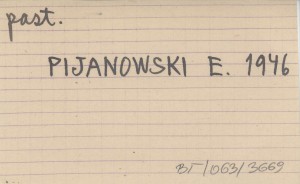 past.
PIJANOWSKI E. 1946
BT/063/3669